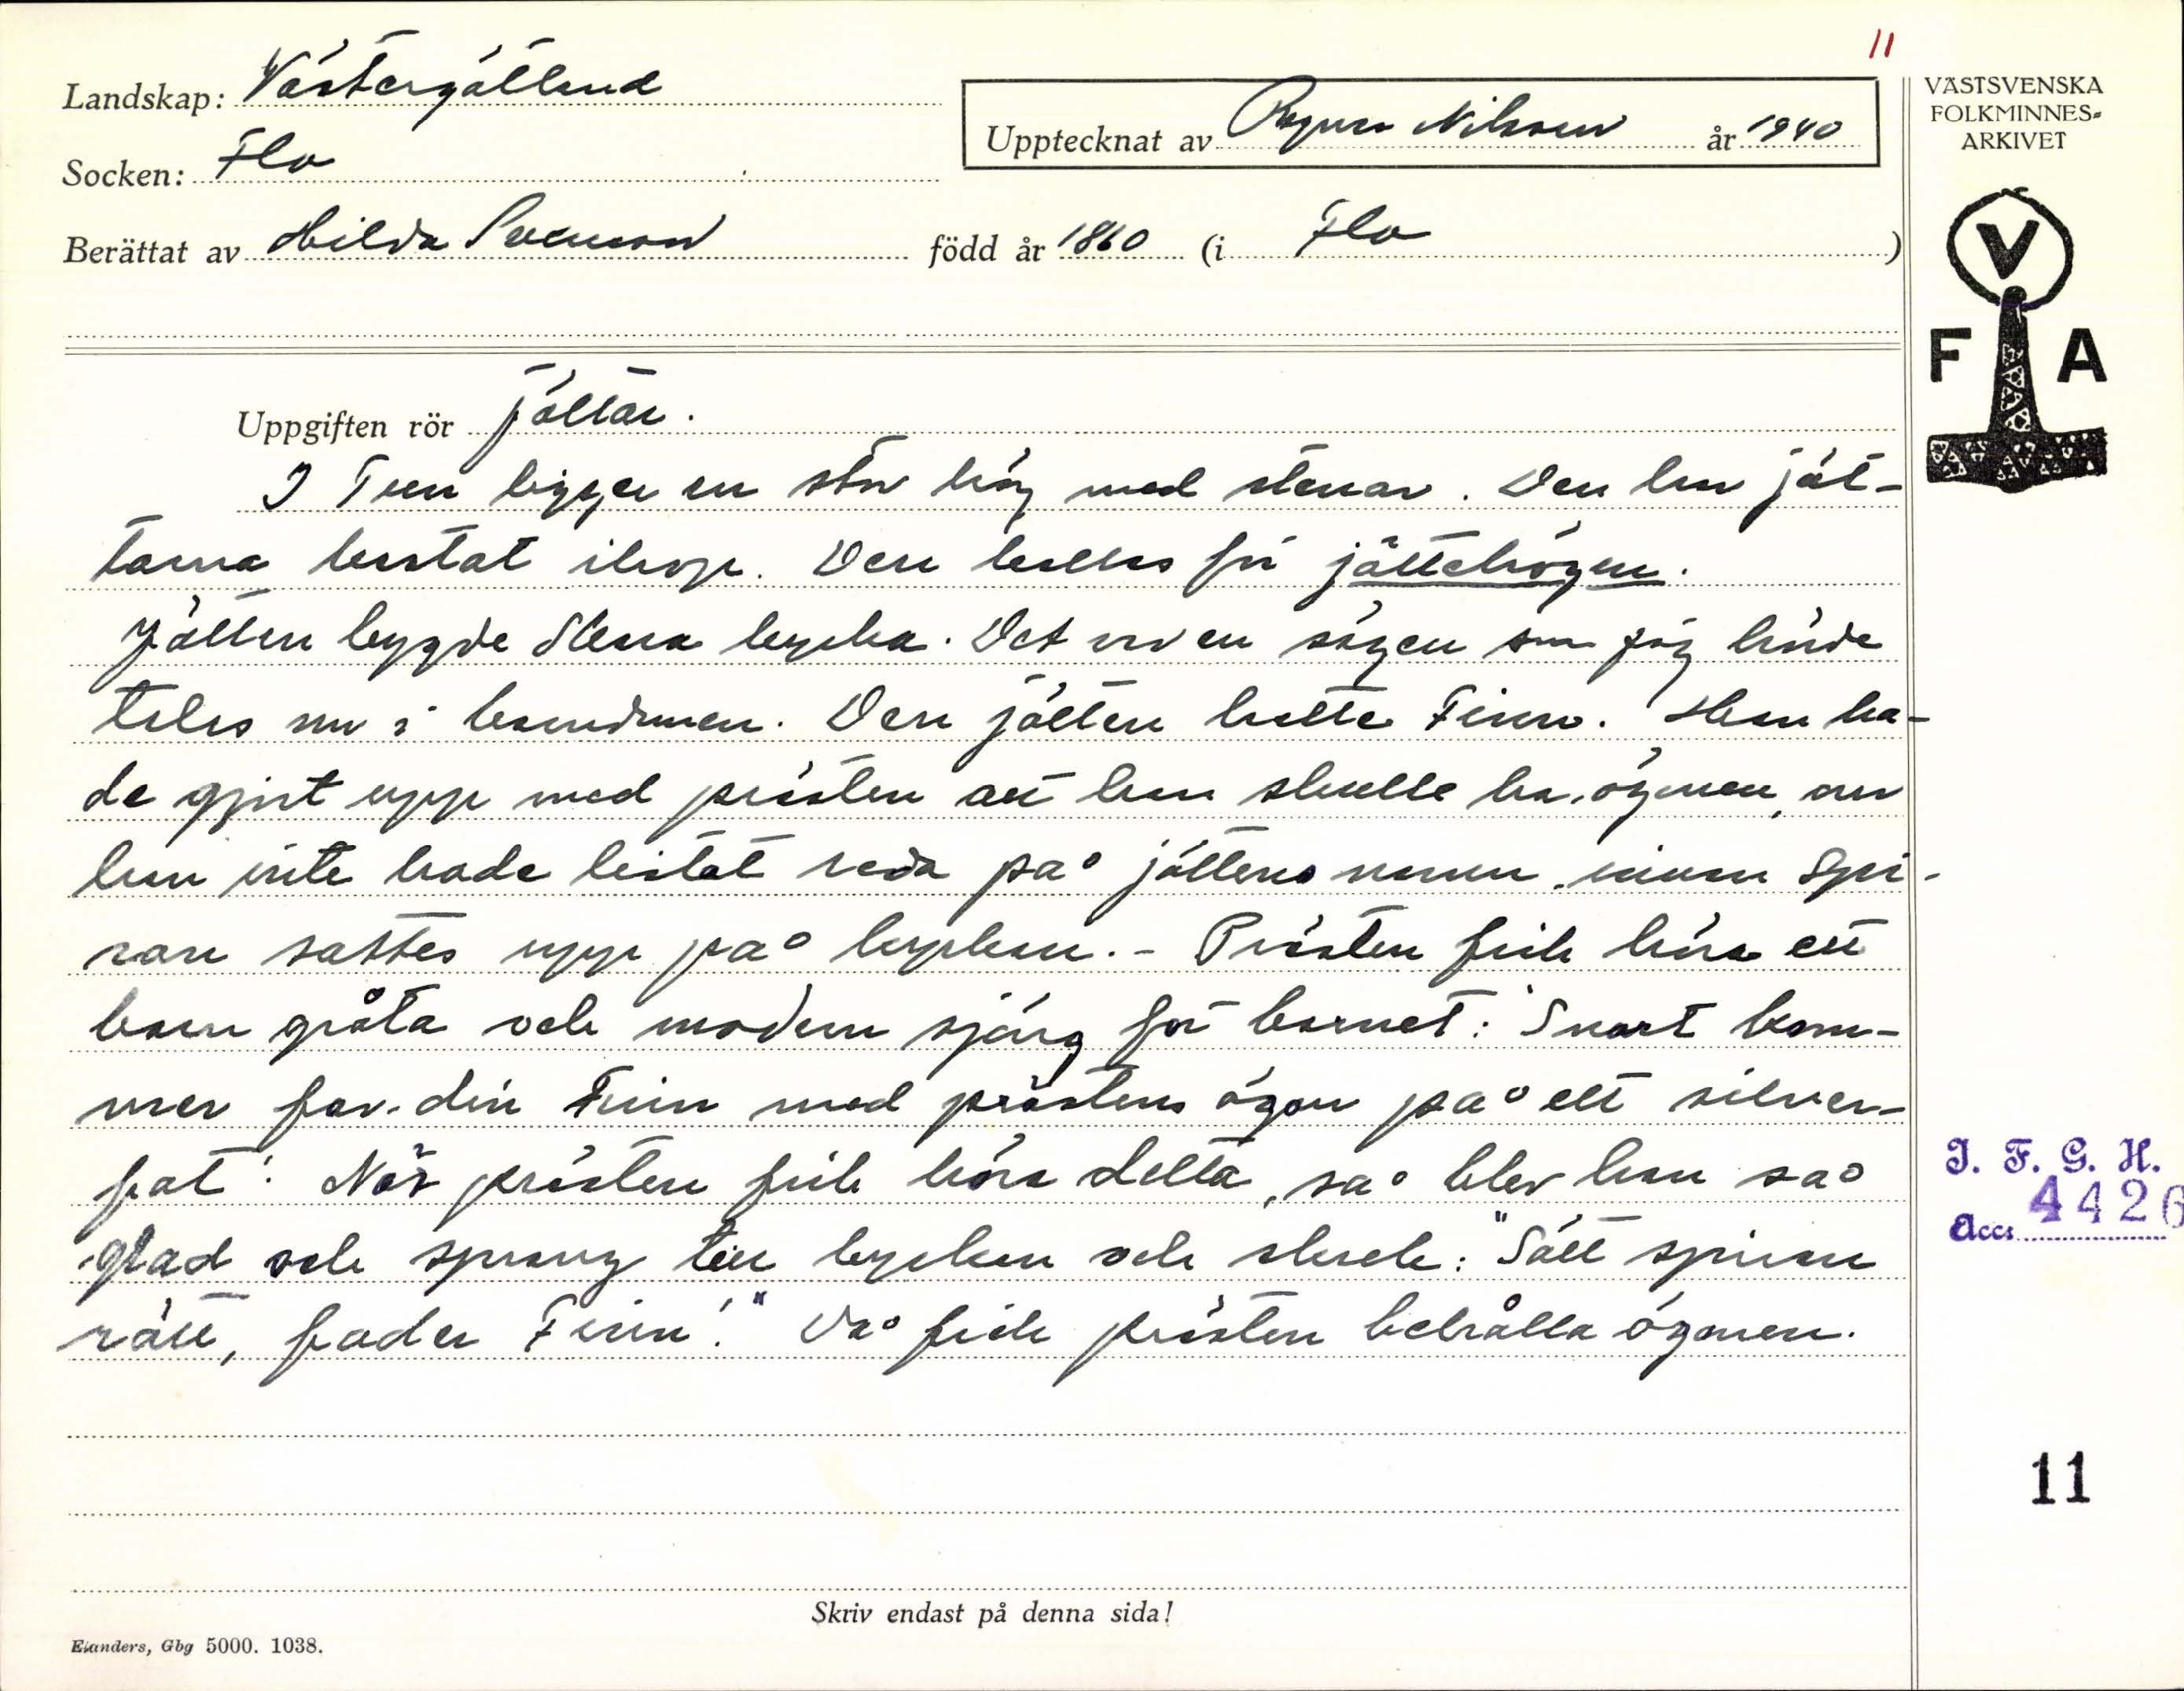 11
Landskap: Västergötland
VÄSTSVENSKA
FOLKMINNES-
ARKIVET
Upptecknat av Ragnar Nilsson år 1940
Socken: Flo
Berättat av Hilda Svensson född år 1860 (i Flo)
V
F A
Uppgiften rör Jättar.
I Tun ligger en stor hög med stenar. Den har jät-
tarna kastat ihop. Den kallas för jättehögen.
Jätten byggde Skara kyrka. Det var en sägen som jag hörde
talas om i barndomen. Den jätten hette Finn. Han ha-
de gjort upp med prästen att han skulle ha ögonen, om
han inte hade listat reda på jättens namn innan spi-
ran sattes upp på kyrkan. - Prästen fick höra ett
barn gråta och modern sjöng för barnet: "Snart kom-
mer far din Finn med prästens ögon på ett silver-
fat". När prästen fick höra detta, så blev han så
glad och sprang till kyrkan och skrek: "Sätt spiran
rätt, fader Finn!" Då fick prästen behålla ögonen.
I. F. G. H.
Acc. 4426
11
Skriv endast på denna sida!
Elanders, Gbg 5000. 1038.